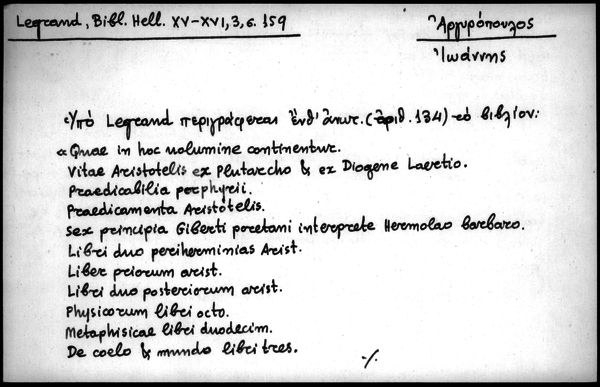 Legrand, Bibl. Hell. XV-XVI, 3, σ. 159
Ἀργυρόπουλος
Ἰωάννης
Ὑπό Legrand περιγράφεται ἔνθ' ἀνωτ. (ἀριθ. 134) τό βιβλίον:
« Quae in hoc uolumine continentur.
Vitae Aristotelis ex Plutarcho & ex Diogene Laertio.
Praedicabilia porphyrii.
Praedicamenta Aristotelis.
Sex principia Giberti poretani interprete Hermolao barbaro.
Libri duo periherminias Arist.
Liber priorum arist.
Libri duo posteriorum arist.
Physicorum libri octo.
Metaphisicae libri duodecim.
De coelo & mundo libri tres.
./.